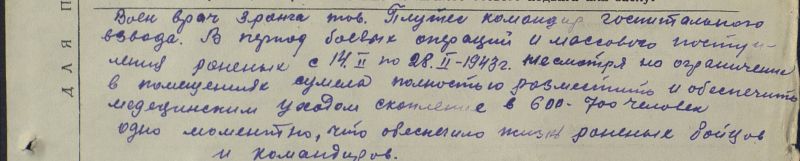 Воен врач 3 ранга тов. Плутес командир госпитального
взвода. В период боевых операций и массового поступ-
ления раненых с 14.II по 28.II-1943г. несмотря на ограничение
в помещениях сумела полностью разместить и обеспечить
медецинским уходом скопление в 600-700 человек
одно моментно, что обеспечило жизн раненых бойцов
и командиров.
ДЛЯ П